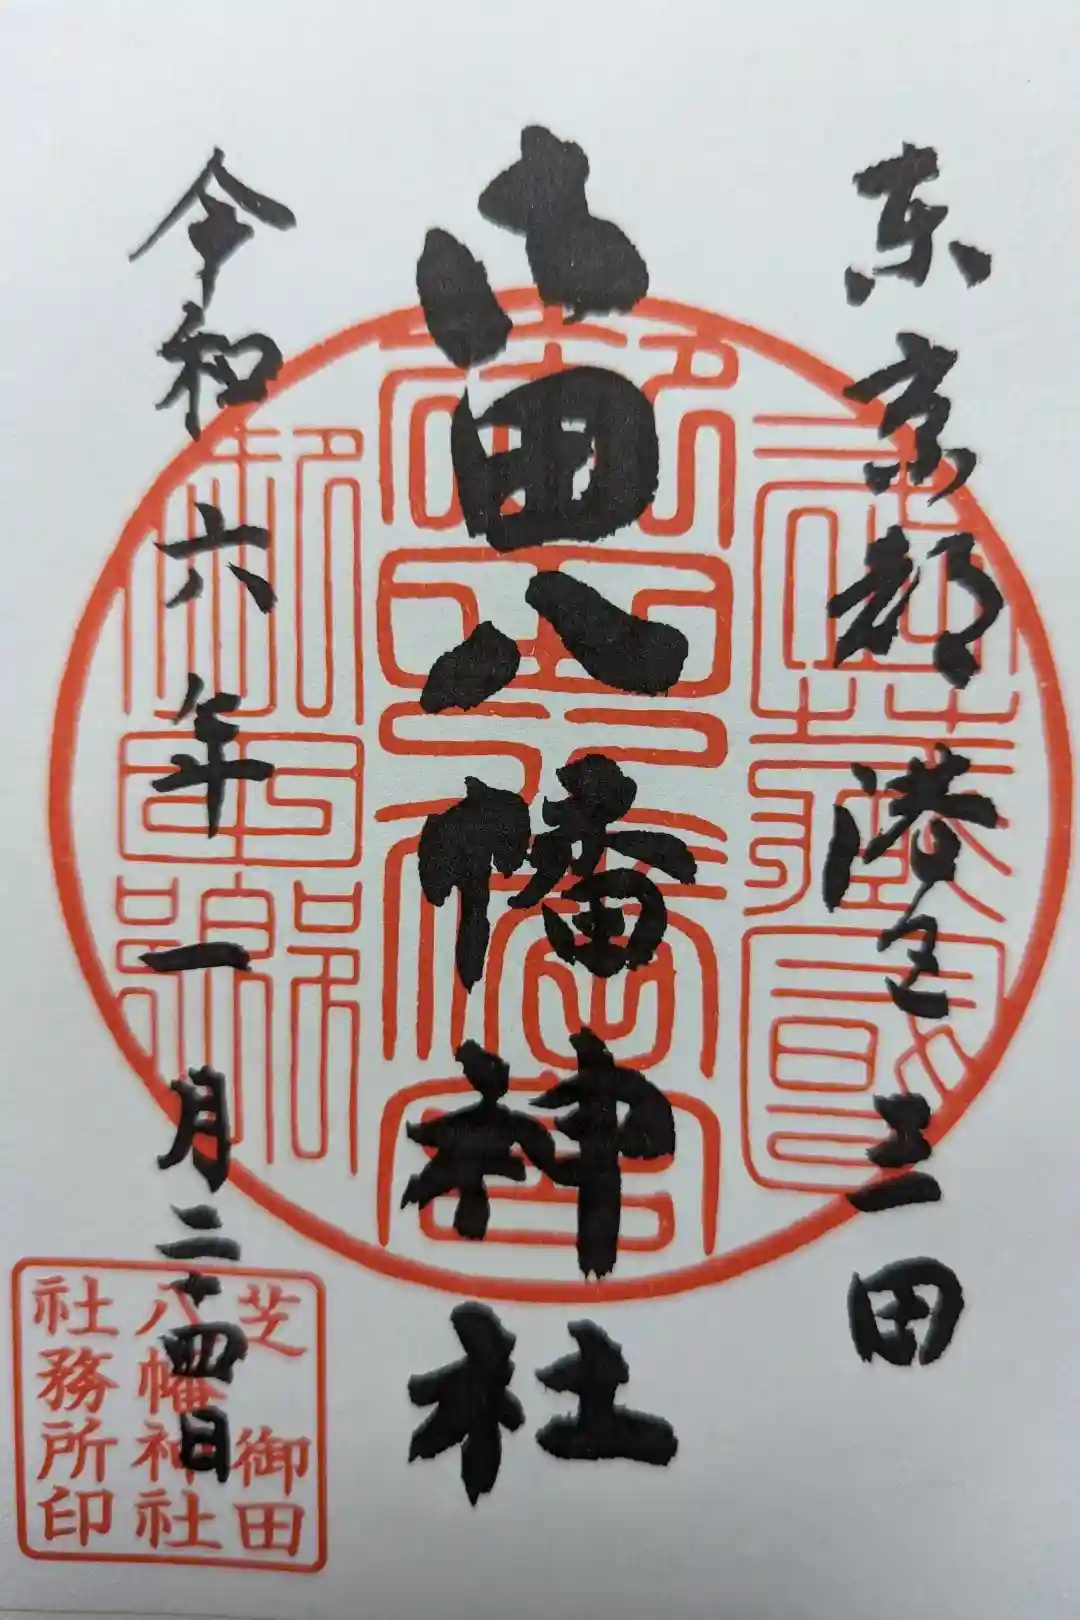 東京都港区三田
御田八幡神社
令和六年一月二十四日
芝 御田
八幡神社
社務所印